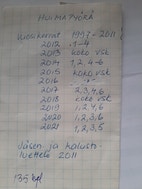 HOLMATYÖKÄ
Vuosikerrat 1997-2011
2012 1-4
2013 koko vsk
2014 1,2,4-6
2015 koko vsk
2016 -"-
2017 2,3,4,6
2018 koko vsk
2019 1,2,4,6
2020 1,2,3,6
2021 1,2,3,5
Jäsen ja
luettelo 2011
135 kpl